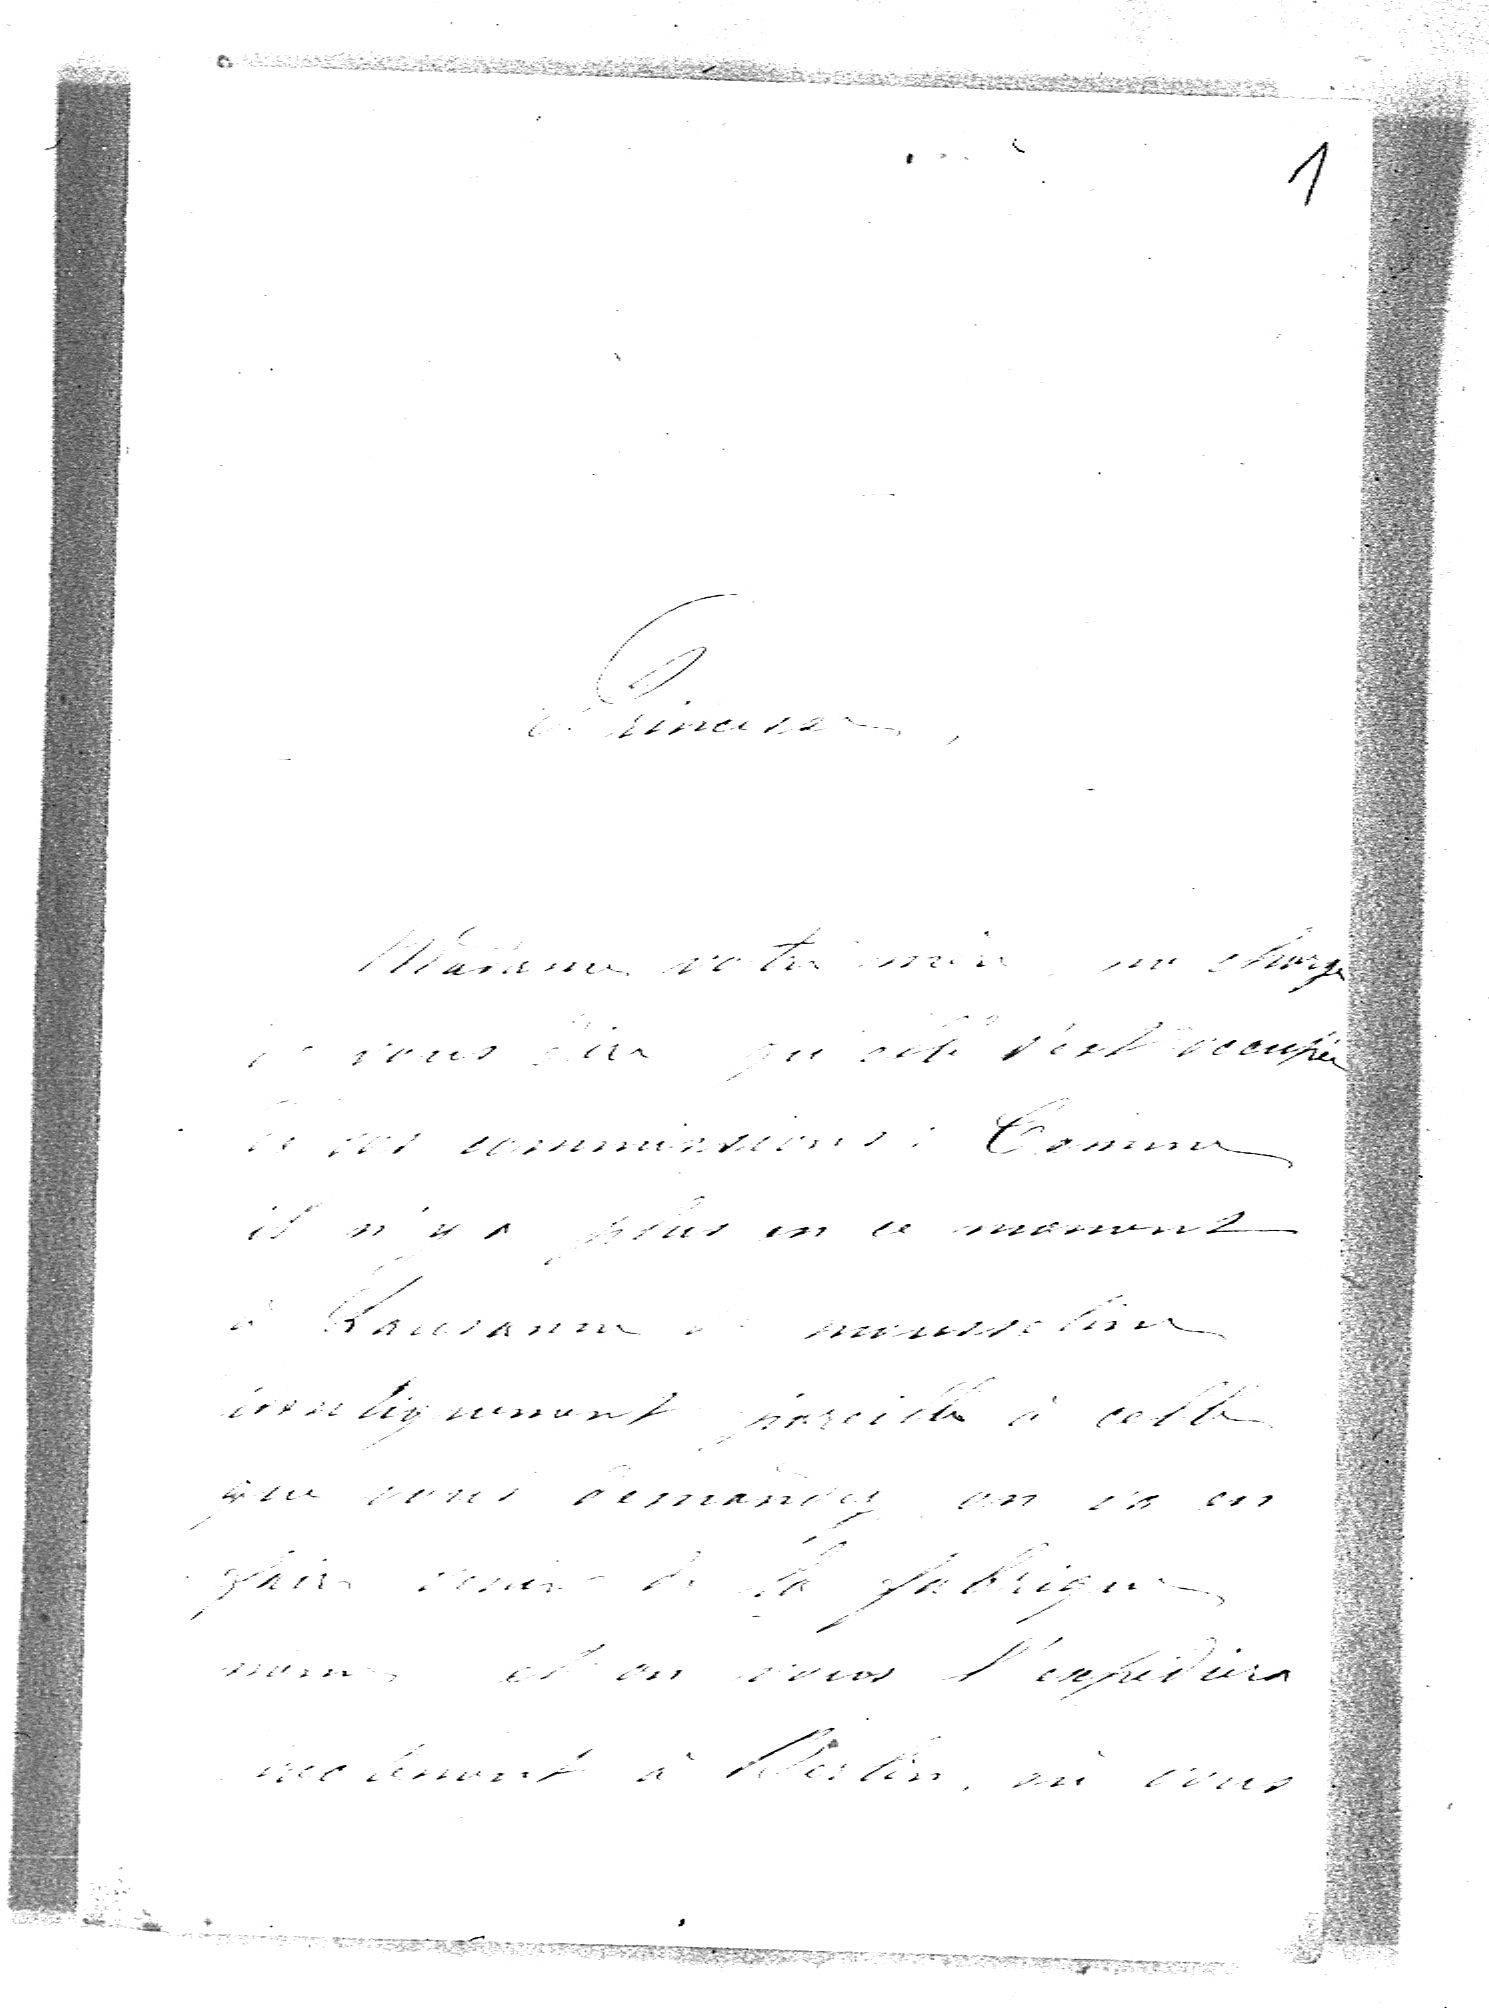 1
Princesse,
Madame votre mère me charge
de vous dire qu'elle s'est occupée
de vos commissions : Comme
il n'y a plus en ce moment
à Lausanne de mousseline
pareille à celle
que vous demandez, on va en
faire venir de la fabrique
même et on vous l'expédiera
à Berlin, où vous